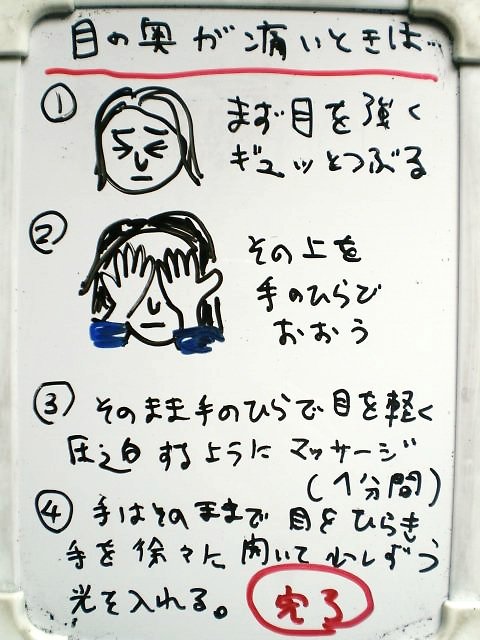 目の奥が痛いときは…
① まず目を強く
ギュッとつぶる
② その上を
手のひらで
おおう
③ そのまま手のひらで目を軽く
圧迫するようにマッサージ
(1分間)
④ 手はそのままで目をひらき
手を徐々に開いて少しずつ
光を入れる。 完了